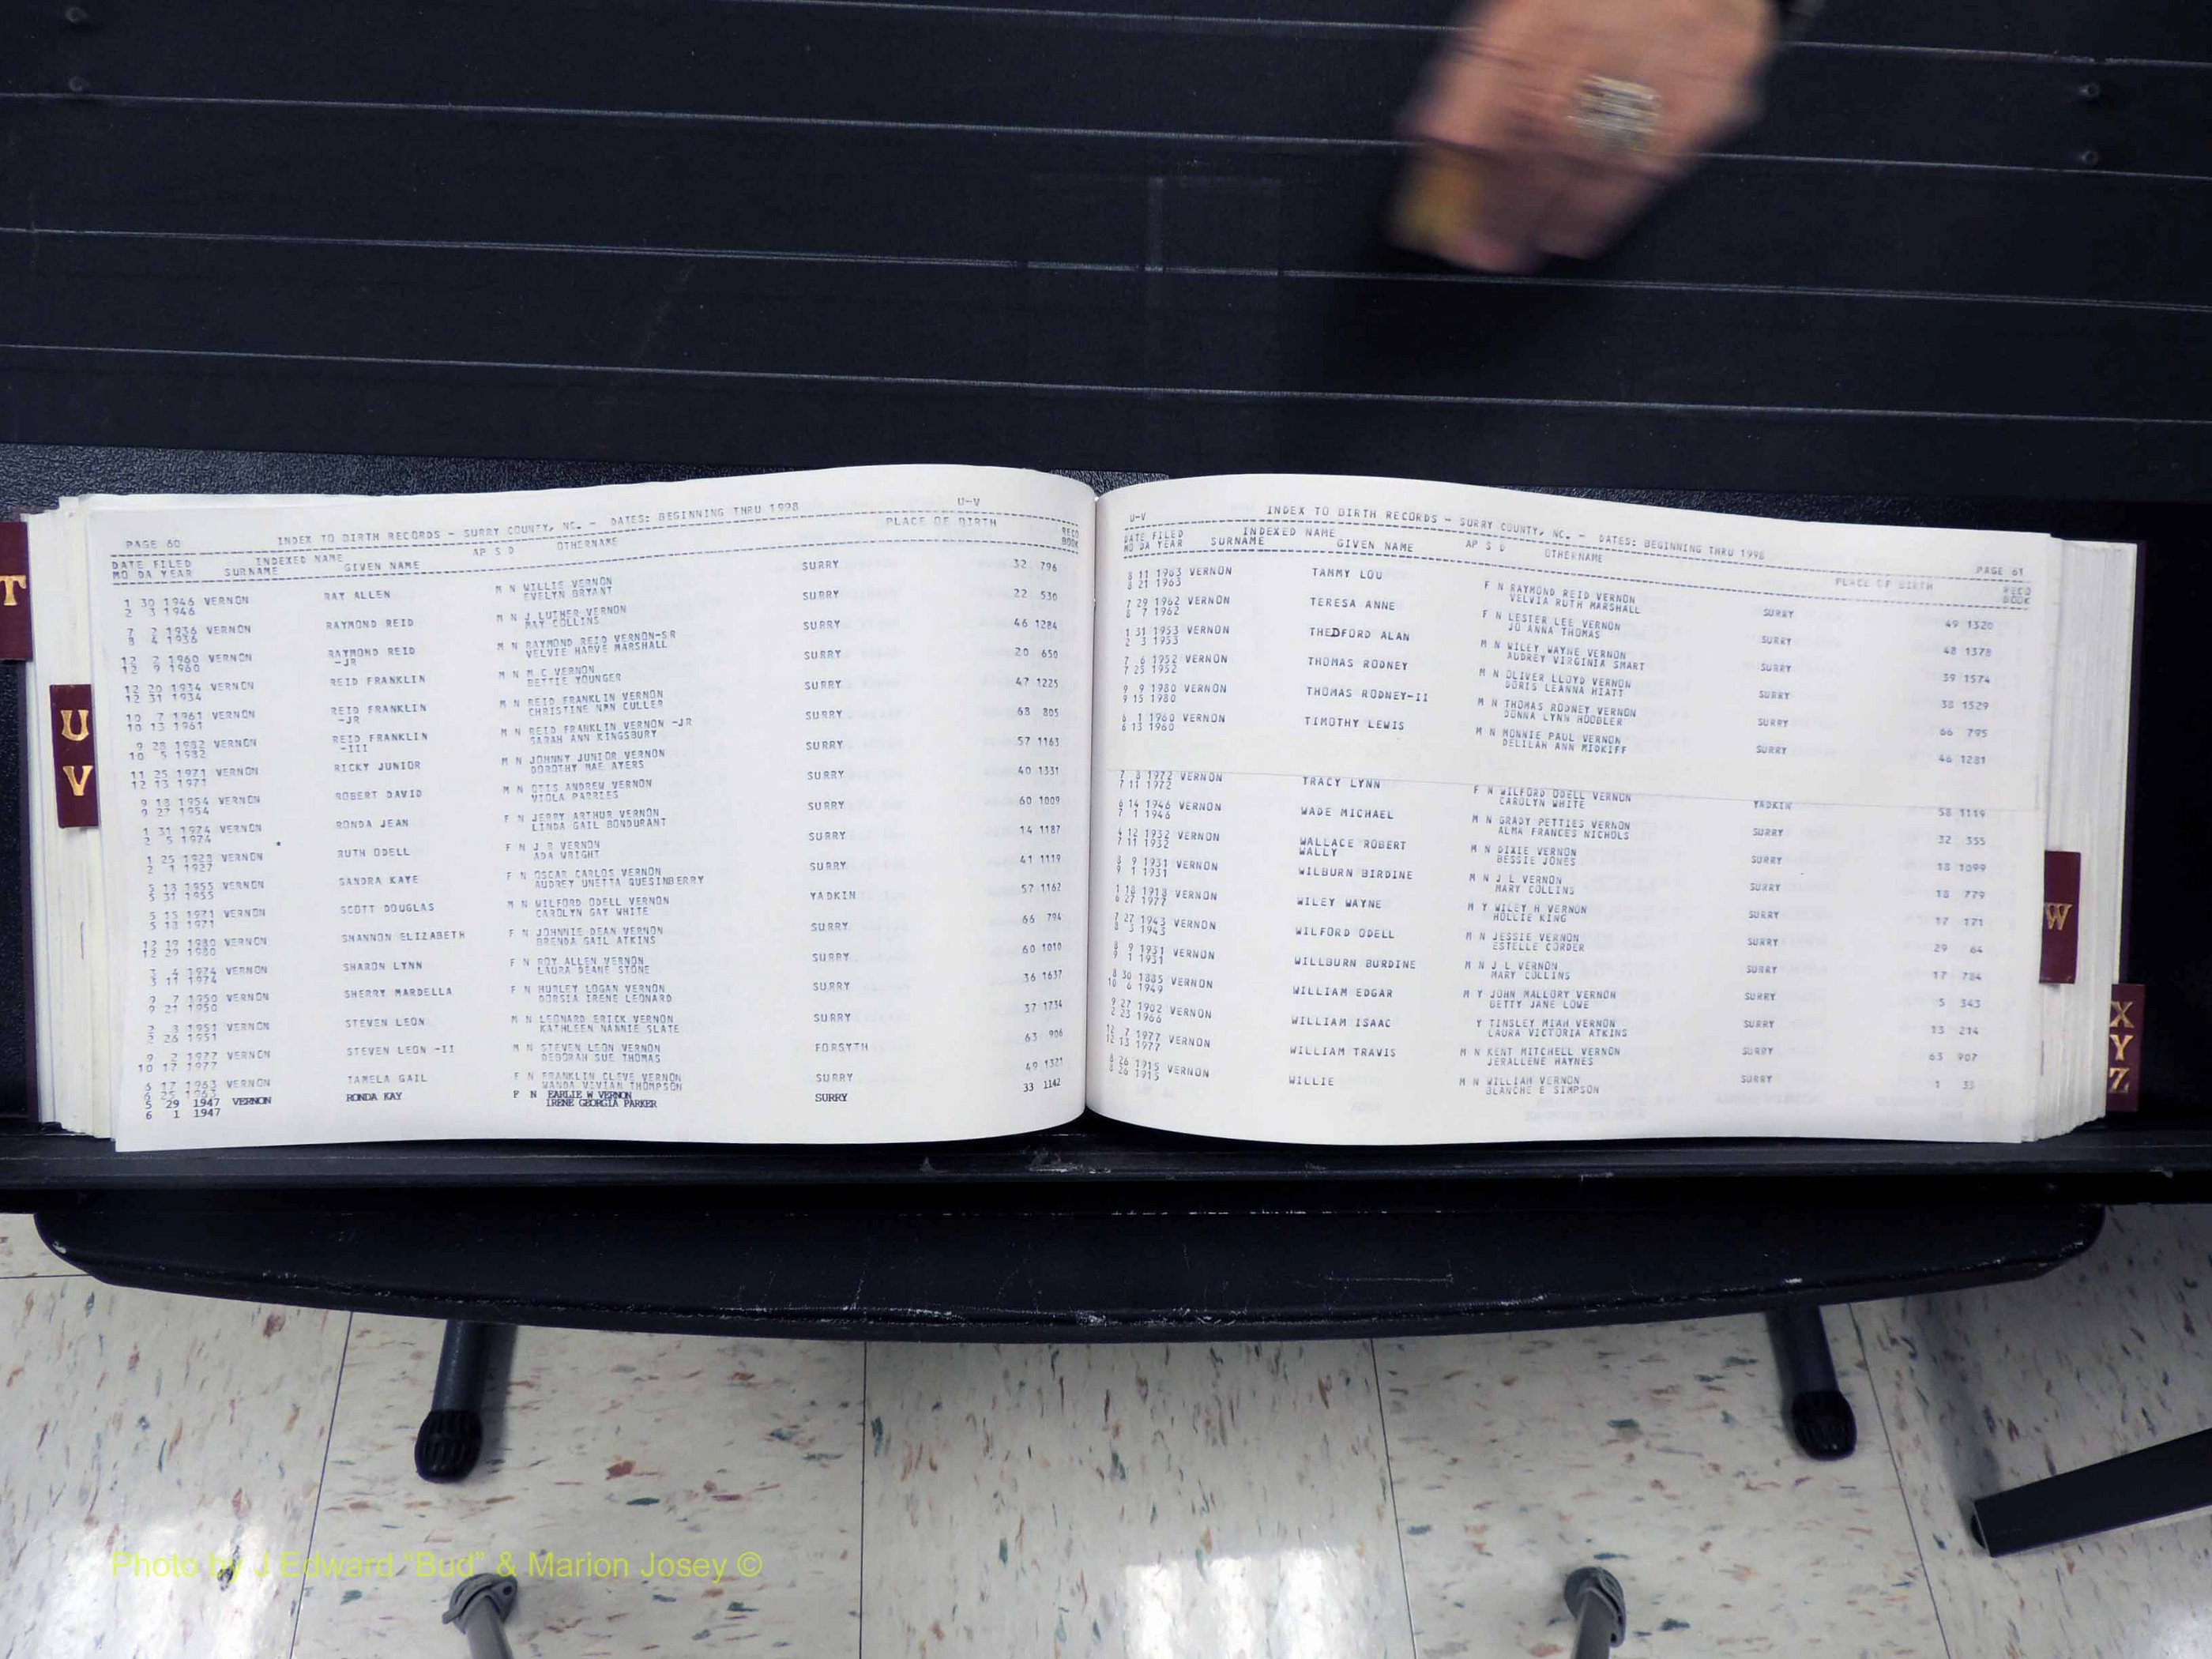 T
U
V
W
X
Y
Z
PAGE 60 INDEX TO BIRTH RECORDS - SURRY COUNTY, NC. - DATES: BEGINNING THRU 1998 U-V
DATE FILED INDEXED NAME AP S D OTHERNAME PLACE OF BIRTH RECD
MO DA YEAR SURNAME GIVEN NAME BOOK
1 30 1946 VERNON RAY ALLEN M N WILLIE VERNON SURRY 32 796
2 3 1946 EVELYN BRYANT
7 2 1936 VERNON RAYMOND REID M N J LUTHER VERNON SURRY 22 530
8 4 1936 MAY COLLINS
12 2 1960 VERNON RAYMOND REID M N RAYMOND REID VERNON-SR SURRY 46 1284
12 9 1960 -JR VELVIE HARVE MARSHALL
12 20 1934 VERNON REID FRANKLIN M N M C VERNON SURRY 20 650
12 31 1934 BETTIE YOUNGER
10 7 1961 VERNON REID FRANKLIN M N REID FRANKLIN VERNON SURRY 47 1225
10 13 1961 -JR CHRISTINE NAN CULLER
9 28 1982 VERNON REID FRANKLIN M N REID FRANKLIN VERNON -JR SURRY 68 805
10 5 1982 -III SARAH ANN KINGSBURY
11 25 1971 VERNON RICKY JUNIOR M N JOHNNY JUNIOR VERNON SURRY 57 1163
12 13 1971 DOROTHY MAE AYERS
9 18 1954 VERNON ROBERT DAVID M N OTIS ANDREW VERNON SURRY 40 1331
9 27 1954 VIOLA PARRIES
1 31 1974 VERNON RONDA JEAN F N JERRY ARTHUR VERNON SURRY 60 1009
2 5 1974 LINDA GAIL BONDURANT
1 25 1928 VERNON RUTH ODELL F N J R VERNON SURRY 14 1187
2 1 1927 ADA WRIGHT
5 13 1955 VERNON SANDRA KAYE F N OSCAR CARLOS VERNON SURRY 41 1119
5 31 1955 AUDREY UNETTA QUESINBERRY
5 15 1971 VERNON SCOTT DOUGLAS M N WILFORD ODELL VERNON YADKIN 57 1162
5 18 1971 CAROLYN GAY WHITE
12 19 1980 VERNON SHANNON ELIZABETH F N JOHNNIE DEAN VERNON SURRY 66 794
12 29 1980 BRENDA GAIL ATKINS
3 4 1974 VERNON SHARON LYNN F N ROY ALLEN VERNON SURRY 60 1010
3 11 1974 LAURA DEANE STONE
9 7 1950 VERNON SHERRY MARDELLA F N HURLEY LOGAN VERNON SURRY 36 1637
9 21 1950 DORSIA IRENE LEONARD
2 3 1951 VERNON STEVEN LEON M N LEONARD ERICK VERNON SURRY 37 1734
2 26 1951 KATHLEEN NANNIE SLATE
9 2 1977 VERNON STEVEN LEON -II M N STEVEN LEON VERNON FORSYTH 63 906
10 17 1977 DEBORAH SUE THOMAS
6 17 1963 VERNON TAMELA GAIL F N FRANKLIN CLEVE VERNON SURRY 49 1321
6 25 1963 WANDA VIVIAN THOMPSON
5 29 1947 VERNON RONDA KAY F N EARLIE W VERNON SURRY 33 1142
6 1 1947 IRENE GEORGIA PARKER
U-V INDEX TO BIRTH RECORDS - SURRY COUNTY, NC. - DATES: BEGINNING THRU 1998 PAGE 61
DATE FILED INDEXED NAME AP S D OTHERNAME PLACE OF BIRTH RECD
MO DA YEAR SURNAME GIVEN NAME BOOK
8 11 1963 VERNON TAMMY LOU F N RAYMOND REID VERNON SURRY 49 1320
8 21 1963 VELVIA RUTH MARSHALL
7 29 1962 VERNON TERESA ANNE F N LESTER LEE VERNON SURRY 48 1378
8 7 1962 JO ANNA THOMAS
1 31 1953 VERNON THEDFORD ALAN M N WILEY WAYNE VERNON SURRY 39 1574
2 3 1953 AUDREY VIRGINIA SMART
7 6 1952 VERNON THOMAS RODNEY M N OLIVER LLOYD VERNON SURRY 38 1529
7 25 1952 DORIS LEANNA HIATT
9 9 1980 VERNON THOMAS RODNEY-II M N THOMAS RODNEY VERNON SURRY 66 795
9 15 1980 DONNA LYNN HOOBLER
6 1 1960 VERNON TIMOTHY LEWIS M N MONNIE PAUL VERNON SURRY 46 1281
6 13 1960 DELILAH ANN MIDKIFF
7 8 1972 VERNON TRACY LYNN F N WILFORD ODELL VERNON YADKIN 58 1119
7 11 1972 CAROLYN WHITE
6 14 1946 VERNON WADE MICHAEL M N GRADY PETTIES VERNON SURRY 32 355
7 1 1946 ALMA FRANCES NICHOLS
4 12 1932 VERNON WALLACE ROBERT M N DIXIE VERNON SURRY 18 1099
7 11 1932 WALLY BESSIE JONES
8 9 1931 VERNON WILBURN BIRDINE M N J L VERNON SURRY 18 779
9 1 1931 MARY COLLINS
1 18 1918 VERNON WILEY WAYNE M Y WILEY H VERNON SURRY 17 171
6 27 1977 HOLLIE KING
7 27 1943 VERNON WILFORD ODELL M N JESSIE VERNON SURRY 29 64
8 3 1943 ESTELLE CORDER
8 9 1931 VERNON WILLBURN BURDINE M N J L VERNON SURRY 17 784
9 1 1931 MARY COLLINS
8 30 1885 VERNON WILLIAM EDGAR M Y JOHN MALLORY VERNON SURRY 5 343
10 6 1949 BETTY JANE LOWE
9 27 1902 VERNON WILLIAM ISAAC Y TINSLEY MIAH VERNON SURRY 13 214
2 23 1966 LAURA VICTORIA ATKINS
12 7 1977 VERNON WILLIAM TRAVIS M N KENT MITCHELL VERNON SURRY 63 907
12 13 1977 JERALLENE HAYNES
8 26 1915 VERNON WILLIE M N WILLIAM VERNON SURRY 1 33
8 26 1915 BLANCHE E SIMPSON
Photo by J Edward "Bud" & Marion Josey ©